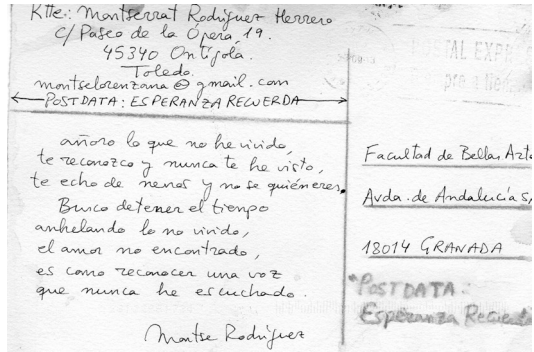 Rtte: Montserrat Rodríguez Herrero
C/ Paseo de la Ópera, 19.
45340 Ontígola.
Toledo.
montselorenzana@gmail.com
POSTDATA: ESPERANZA RECUERDA
añoro lo que no he vivido,
te reconozco y nunca te he visto,
te echo de menos y no se quién eres.
Busco detener el tiempo
anhelando lo no vivido,
el amor no encontrado,
es como reconocer una voz
que nunca he escuchado.
Montse Rodríguez
POSTAL EXPR
Facultad de Bellas Art
Avda. de Andalucía s/
18014 GRANADA
*POSTDATA:
Esperanza Recuerda